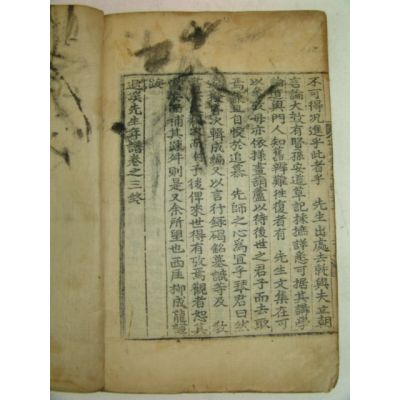 不可得況進乎此者乎 先生出處去就與夫立朝
言論大致有賢孫安道草記採摭詳悉可據其講學
論道與門人知舊辨難往復者有 先生文集在可
以參攷毋亦依㨾畫葫蘆以待後世之君子而去取
焉 自慢於追慕 先師之心爲宜乎琴君曰然
次輯成編又以言行錄碣銘墓識等及 敎
于後俾來世得有攷焉觀者恕其
補其疎舛則是又余所望也西厓柳成龍謹
跋
退溪先生年譜卷之三終